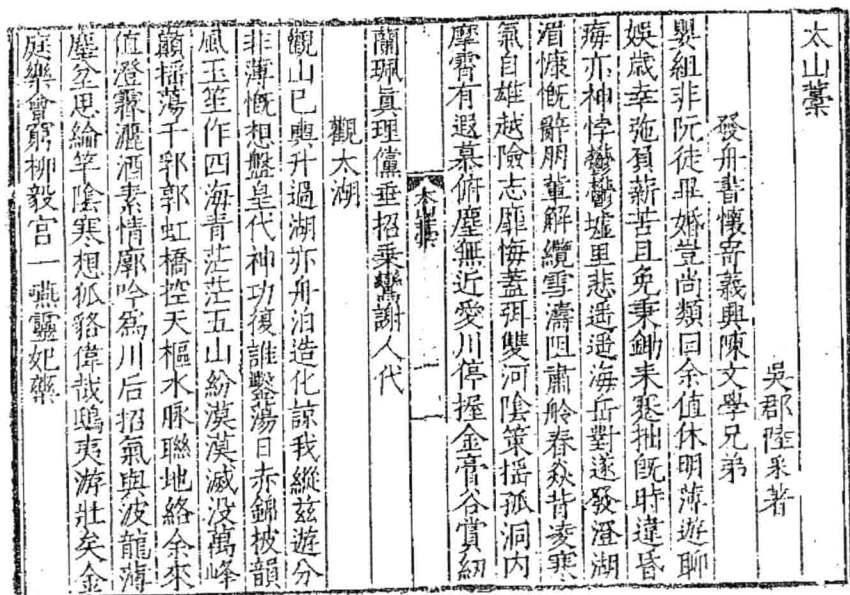 太山藁
吳郡陸采著
發舟書懷寄義興陳文學兄弟
嬰組非阮徒畢婚豈尚類曰余值休明萍遊聊
娛歲幸弛負薪苦且免秉鋤耒蹇拙旣時違昏
痗亦神悖鬱鬱墟里悲遥遥海岳對遂發澄湖
湄慷慨辭朋輩解纜雪濤阻肅舲春焱背凌寒
氣自雄越險志靡悔蓋弭雙河陰策摇孤洞内
摩霄有遐慕俯塵無近愛川停握金膏谷賞紉
太山藁
一
蘭珮眞理儻垂招乗鸞謝人代
觀太湖
觀山已輿升過湖亦舟泊造化諒我縱兹遊分
非薄慨想盤皇代神功復誰鑿蕩日赤錦披韻
風玉笙作四海青茫茫五山紛漠漠滅没萬峰
巔摇蕩千郛郭虹橋控天樞水脉聯地絡余來
值澄霽灑酒素情廓吟爲川后招氣與波龍薄
塵坌思綸竿陰寒想狐貉偉哉鴟夷游壯矣金
庭樂會窮柳毅宫一嚥靈妃藥